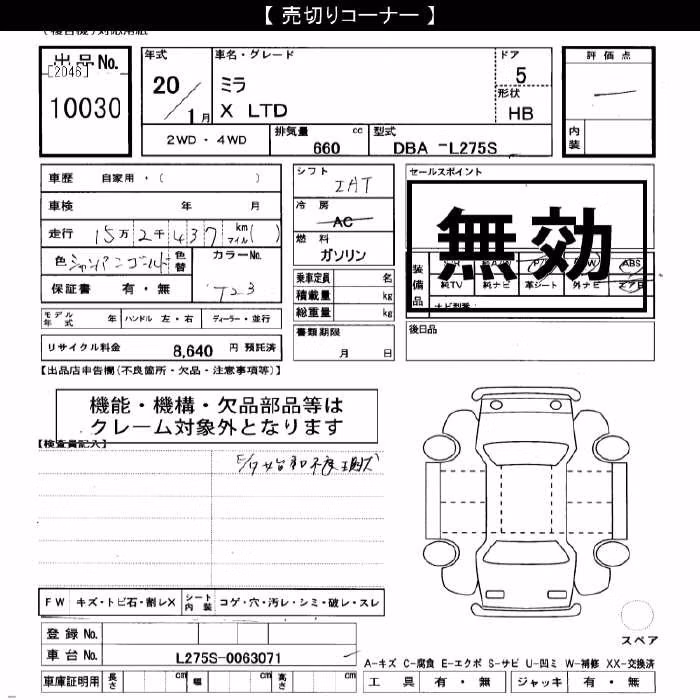 【 売切りコーナー 】
出品No.
[2046]
10030
年式
20
1月
車名・グレード
ミラ
X LTD
ドア
5
形状
HB
評価点
内装
2WD・4WD
排気量 660 cc
型式 DBA -L275S
車歴 自家用・( )
車検 年 月
走行 15万2千437 km マイル( )
色 シャンパンゴールド 色替 カラーNo.
保証書 有・無 T23
シフト
IAT
冷房
AC
燃料
ガソリン
乗車定員 名
積載量 kg
総重量 kg
セールスポイント
無効
装備品
ABS
純TV 純ナビ 革シート 外ナビ エアB
ナビ型番:
モデル年式 年 ハンドル 左・右 ディーラー・並行
リサイクル料金 8,640 円 預託済
書類期限
月 日
後日品
【出品店申告欄(不良箇所・欠品・注意事項等)】
機能・機構・欠品部品等は
クレーム対象外となります
【検査員記入】
FW キズ・トビ石・割レX シート内装 コゲ・穴・汚レ・シミ・破レ・スレ
登録No.
車台No. L275S-0063071
車庫証明用 長さ cm 幅 cm 高さ cm
スペア
A-キズ C-腐食 E-エクボ S-サビ U-凹ミ W-補修 XX-交換済
工具 有・無 ジャッキ 有・無